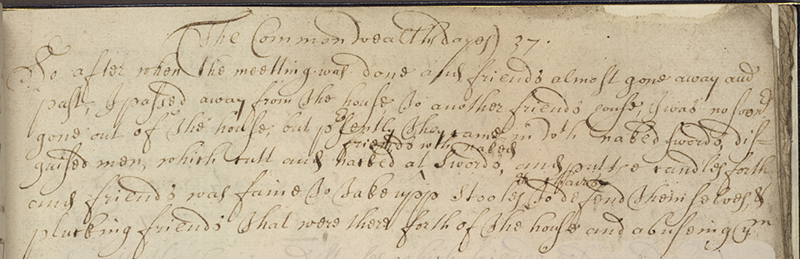 (The Commonwealths dayes) 37.
So after when the meetting was done and friends almost gone away and
past, I passed away from the house to another friends house I was no sooner
gone out of the house, but psently they came in wth naked swords, dis-
friends wth naked
gaised men, which cutt and hacked at swords, and putt ye candles forth
& chaires
and friends was faine to take upp stooles to defend themselves, &
plucking friends that were there forth of the house and abuseing ym